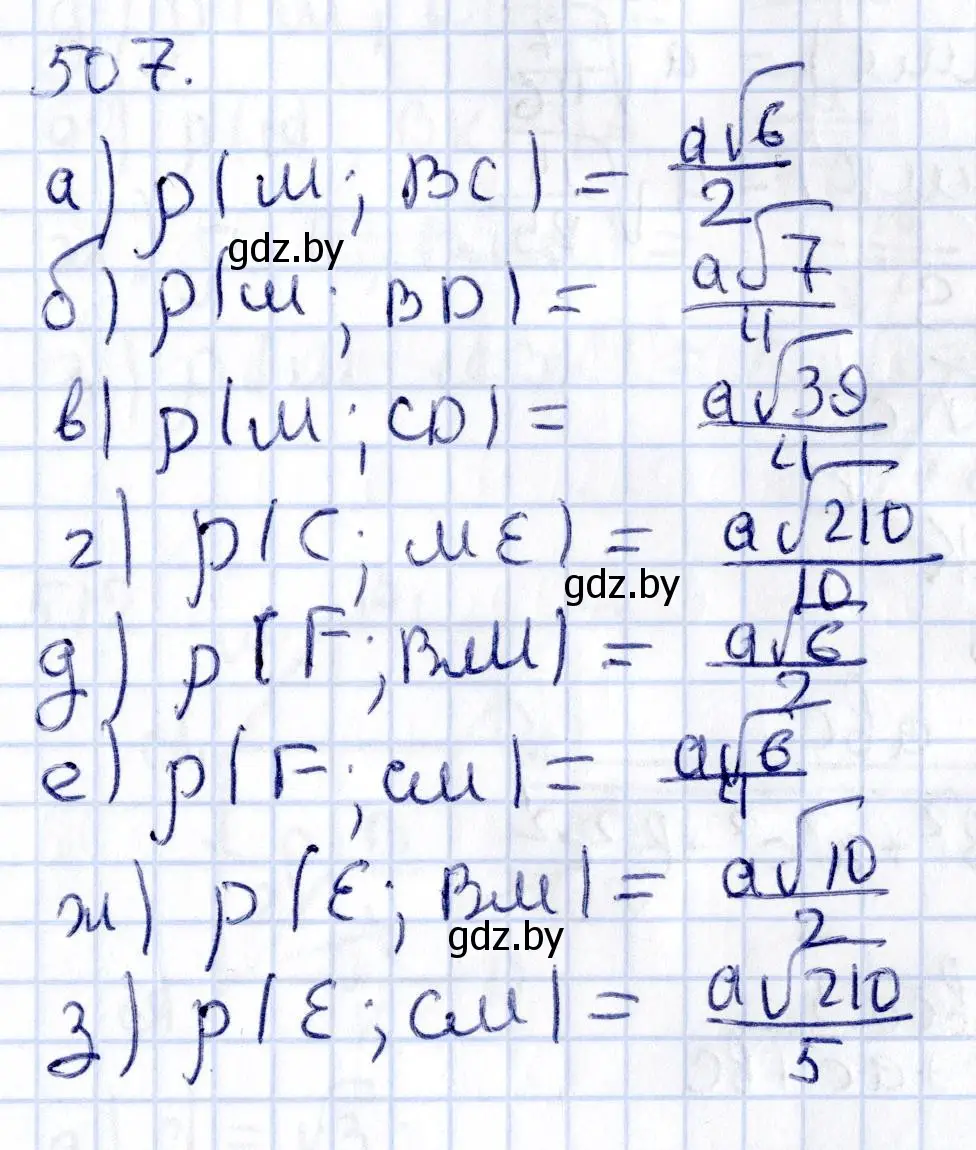 507.
а) ρ(M; BC) = a√6/2
gdz.by
б) ρ(M; BD) = a√7/4
в) ρ(M; CD) = a√39/4
г) ρ(C; ME) = a√210/10
gdz.by
д) ρ(F; BM) = a√6/2
е) ρ(F; CM) = a√6/4
ж) ρ(E; BM) = a√10/2
gdz.by
з) ρ(E; CM) = a√210/5